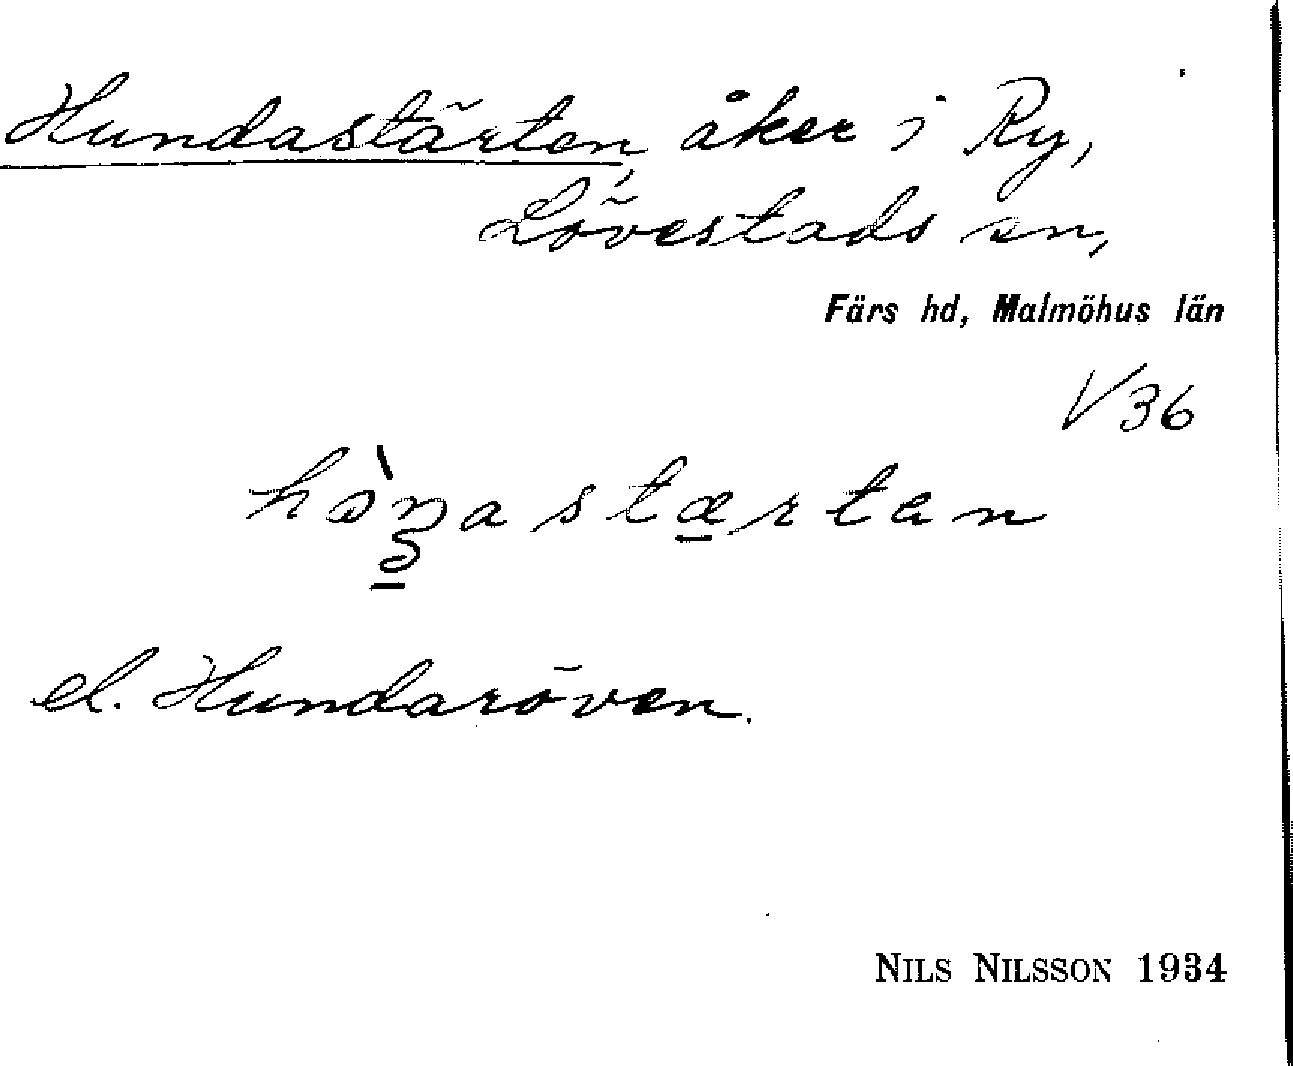 Hundastärten, åker i Ry,
Lövestads sn,
Färs hd, Malmöhus län
V36
el. Hundaröven.
NILS NILSSON 1934